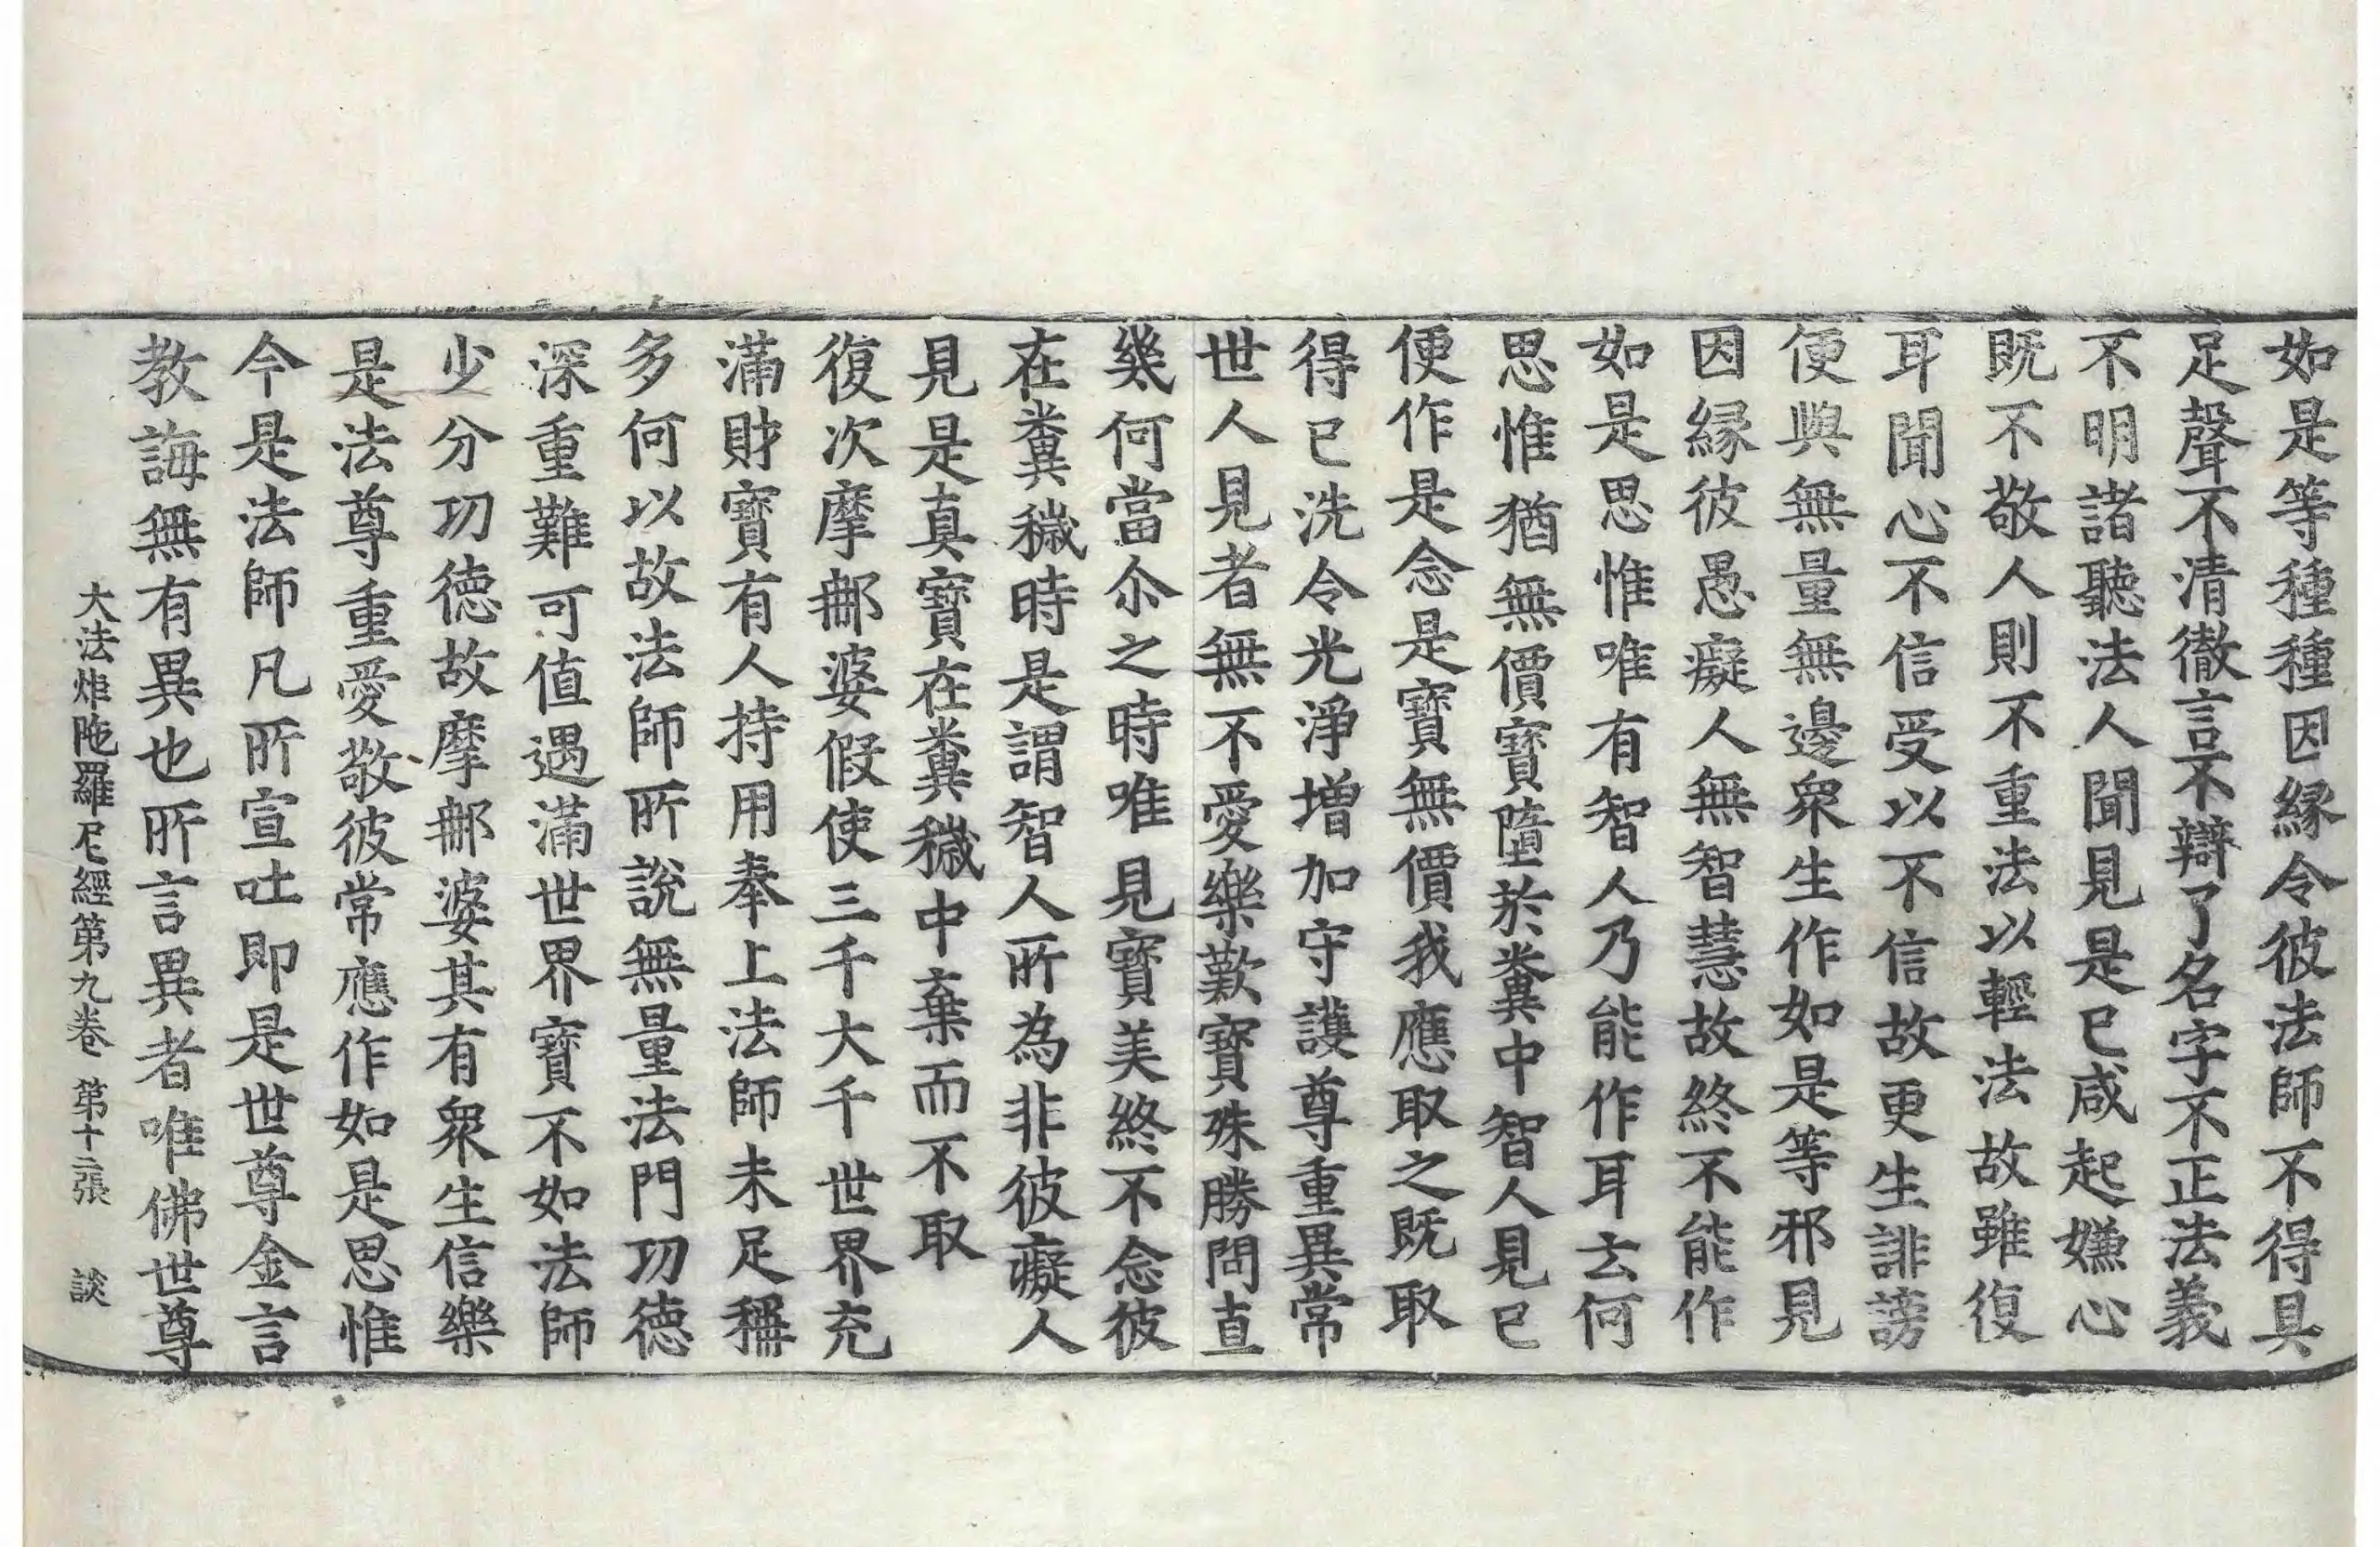 如是等種種因縁令彼法師不得具
足聲不清徹言不辯了名字不正法義
不明諸聽法人聞見是已咸起嫌心
既不敬人則不重法以輕法故雖復
耳聞心不信受以不信故更生誹謗
便與無量無邊衆生作如是等邪見
因縁彼愚癡人無智慧故終不能作
如是思惟唯有智人乃能作耳云何
思惟猶無價寳墮於糞中智人見已
便作是念是寳無價我應取之既取
得已洗令光淨增加守護尊重異常
世人見者無不愛樂歎寳殊勝問直
幾何當尒之時唯見寳美終不念彼
在糞穢時是謂智人所為非彼癡人
見是真寳在糞穢中棄而不取
復次摩那婆假使三千大千世界充
滿財寳有人持用奉上法師未足稱
多何以故法師所說無量法門功德
深重難可值遇滿世界寳不如法師
少分功德故摩那婆其有衆生信樂
是法尊重愛敬彼常應作如是思惟
今是法師凡所宣吐即是世尊金言
教誨無有異也所言異者唯佛世尊
大法炬陁羅尼經第九卷 第十二張 談